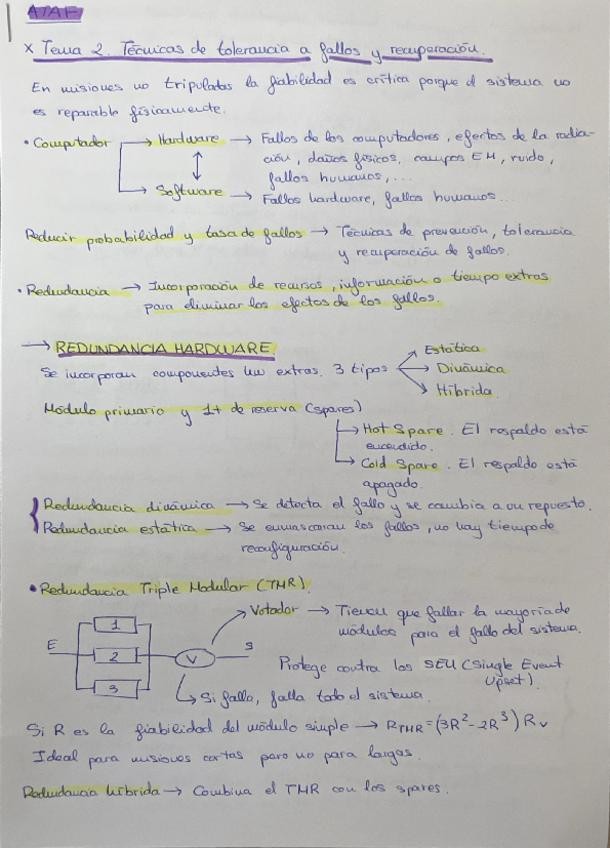 ATAF
x Tema 2. Técnicas de tolerancia a fallos y recuperación.
En misiones no tripuladas la fiabilidad es crítica porque el sistema no
es reparable físicamente.
• Computador → Hardware → Fallos de los computadores, efectos de la radia-
ción, daños físicos, campos EM, ruido,
fallos humanos, ...
Software → Fallos hardware, fallos humanos...
Reducir probabilidad y tasa de fallos → Técnicas de prevención, tolerancia
y recuperación de fallos.
• Redundancia → Incorporación de recursos, información o tiempo extras
para eliminar los efectos de los fallos.
→ REDUNDANCIA HARDWARE
Estática
Se incorporan componentes hw extras. 3 tipos → Dinámica
Híbrida
Módulo primario y 1+ de reserva (spares)
→ Hot Spare. El respaldo está
encendido.
→ Cold Spare. El respaldo está
apagado.
Redundancia dinámica → Se detecta el fallo y se cambia a un repuesto.
Redundancia estática → Se enmascaran los fallos, no hay tiempo de
reconfiguración.
• Redundancia Triple Modular (TMR).
Votador → Tienen que fallar la mayoría de
módulos para el fallo del sistema.
1
E 2 V S
3
Protege contra los SEU (Single Event
Upset).
Si falla, falla todo el sistema.
Si R es la fiabilidad del módulo simple → R_TMR = (3R² - 2R³) R_V
Ideal para misiones cortas pero no para largas.
Redundancia híbrida → Combina el TMR con los spares.